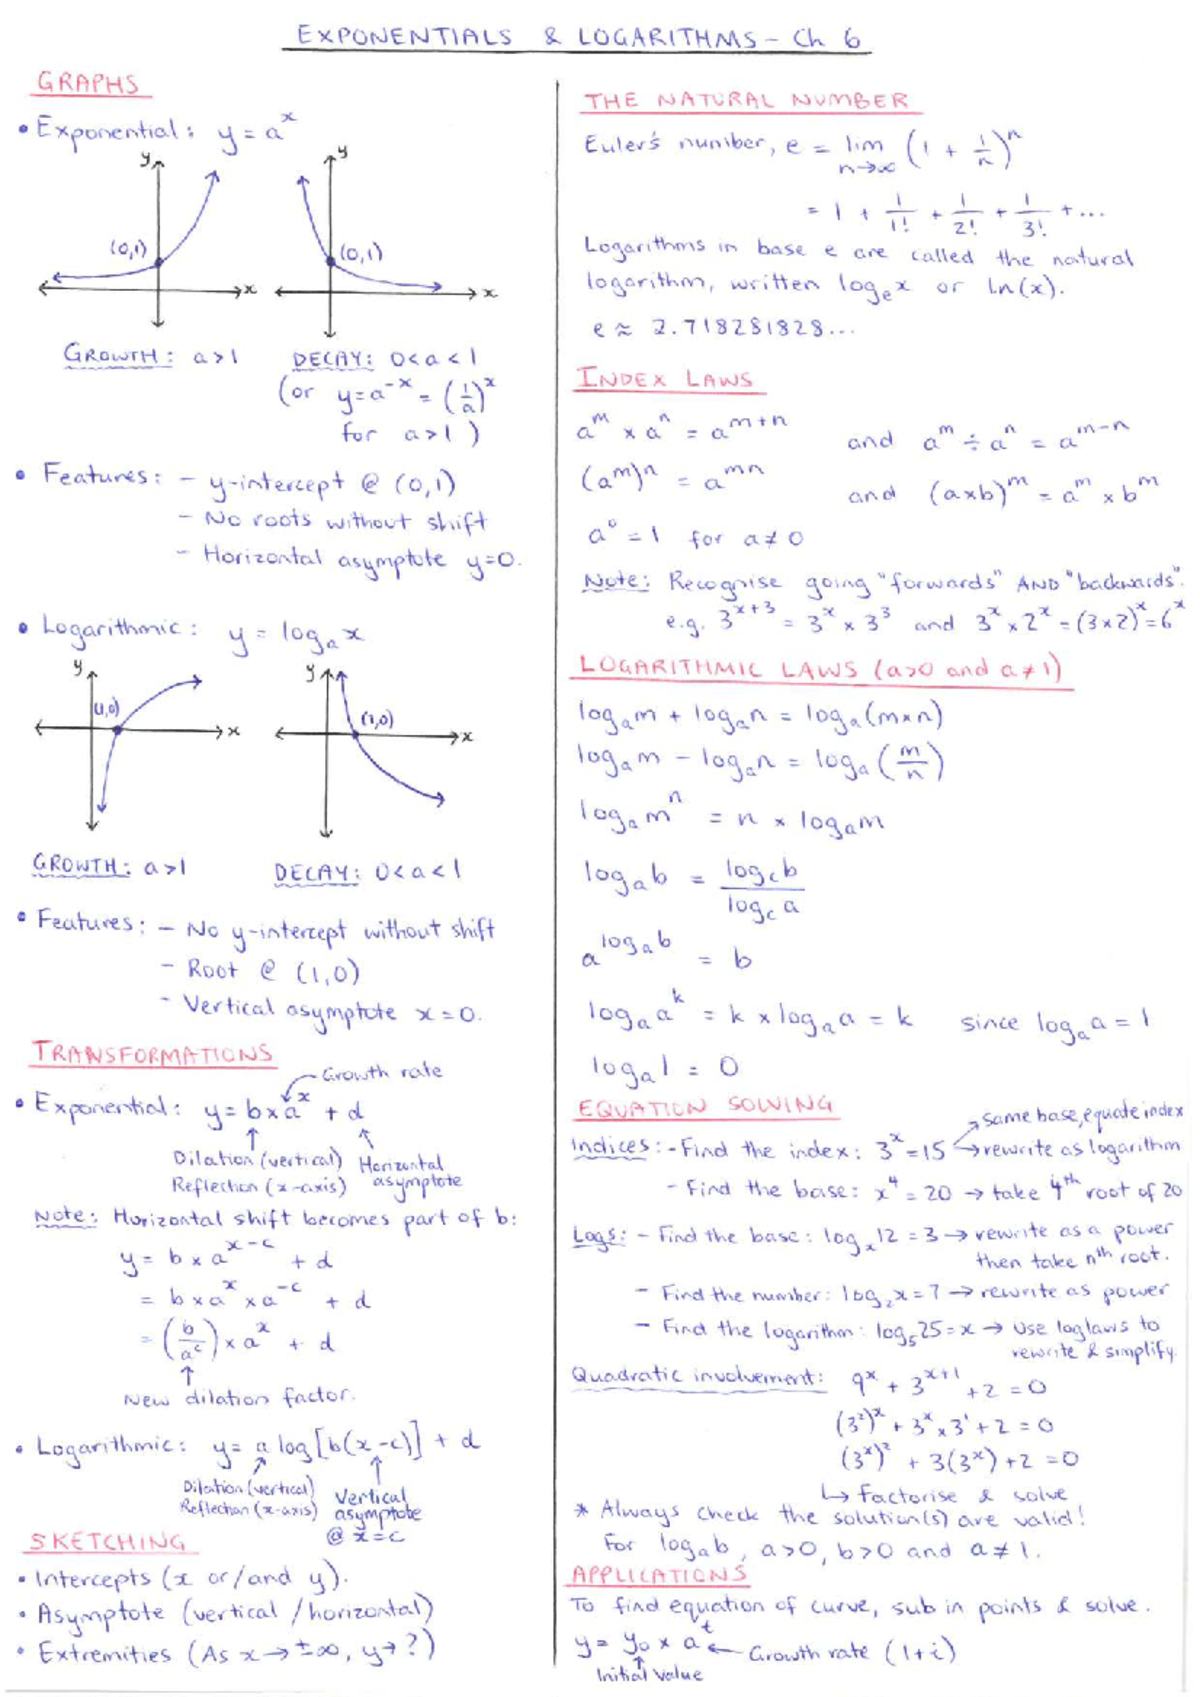 EXPONENTIALS & LOGARITHMS - Ch 6
GRAPHS
• Exponential: y = a^x
y
y
(0,1)
(0,1)
x
x
GROWTH: a>1
DECAY: 0<a<1
(or y=a^-x = (1/a)^x
for a>1)
• Features: - y-intercept @ (0,1)
- No roots without shift
- Horizontal asymptote y=0.
• Logarithmic: y = log_a x
y
y
(1,0)
(1,0)
x
x
GROWTH: a>1
DECAY: 0<a<1
• Features: - No y-intercept without shift
- Root @ (1,0)
- Vertical asymptote x=0.
TRANSFORMATIONS
Growth rate
• Exponential: y = b×a^x + d
Dilation (vertical)
Reflection (x-axis)
Horizontal
asymptote
Note: Horizontal shift becomes part of b:
y = b × a^(x-c) + d
= b×a^x × a^-c + d
= (b/a^c) × a^x + d
New dilation factor.
• Logarithmic: y = a log[b(x-c)] + d
Dilation (vertical)
Reflection (x-axis)
Vertical
asymptote
@ x=c
SKETCHING
• Intercepts (x or/and y).
• Asymptote (vertical /horizontal)
• Extremities (As x→±∞, y→?)
THE NATURAL NUMBER
Euler's number, e = lim n→∞ (1 + 1/n)^n
= 1 + 1/1! + 1/2! + 1/3! + ...
Logarithms in base e are called the natural
logarithm, written log_e x or ln(x).
e ≈ 2.718281828...
INDEX LAWS
a^m × a^n = a^(m+n) and a^m ÷ a^n = a^(m-n)
(a^m)^n = a^mn and (a×b)^m = a^m × b^m
a^0 = 1 for a≠0
Note: Recognise going "forwards" AND "backwards".
e.g. 3^(x+3) = 3^x × 3^3 and 3^x × 2^x = (3×2)^x = 6^x
LOGARITHMIC LAWS (a>0 and a≠1)
log_a m + log_a n = log_a (m×n)
log_a m - log_a n = log_a (m/n)
log_a m^n = n × log_a m
log_a b = log_c b / log_c a
a^(log_a b) = b
log_a a^k = k × log_a a = k since log_a a = 1
log_a 1 = 0
EQUATION SOLVING
→ same base, equate index
Indices: - Find the index: 3^x = 15 → rewrite as logarithm
- Find the base: x^4 = 20 → take 4th root of 20
Logs: - Find the base: log_x 12 = 3 → rewrite as a power
then take nth root.
- Find the number: log_2 x = 7 → rewrite as power
- Find the logarithm: log_5 25 = x → use log laws to
rewrite & simplify.
Quadratic involvement: 9^x + 3^(x+1) + 2 = 0
(3^2)^x + 3^x × 3^1 + 2 = 0
(3^x)^2 + 3(3^x) + 2 = 0
↳ Factorise & solve
* Always check the solution(s) are valid!
For log_a b, a>0, b>0 and a≠1.
APPLICATIONS
To find equation of curve, sub in points & solve.
y = y_0 × a^t ← Growth rate (1+i)
Initial value